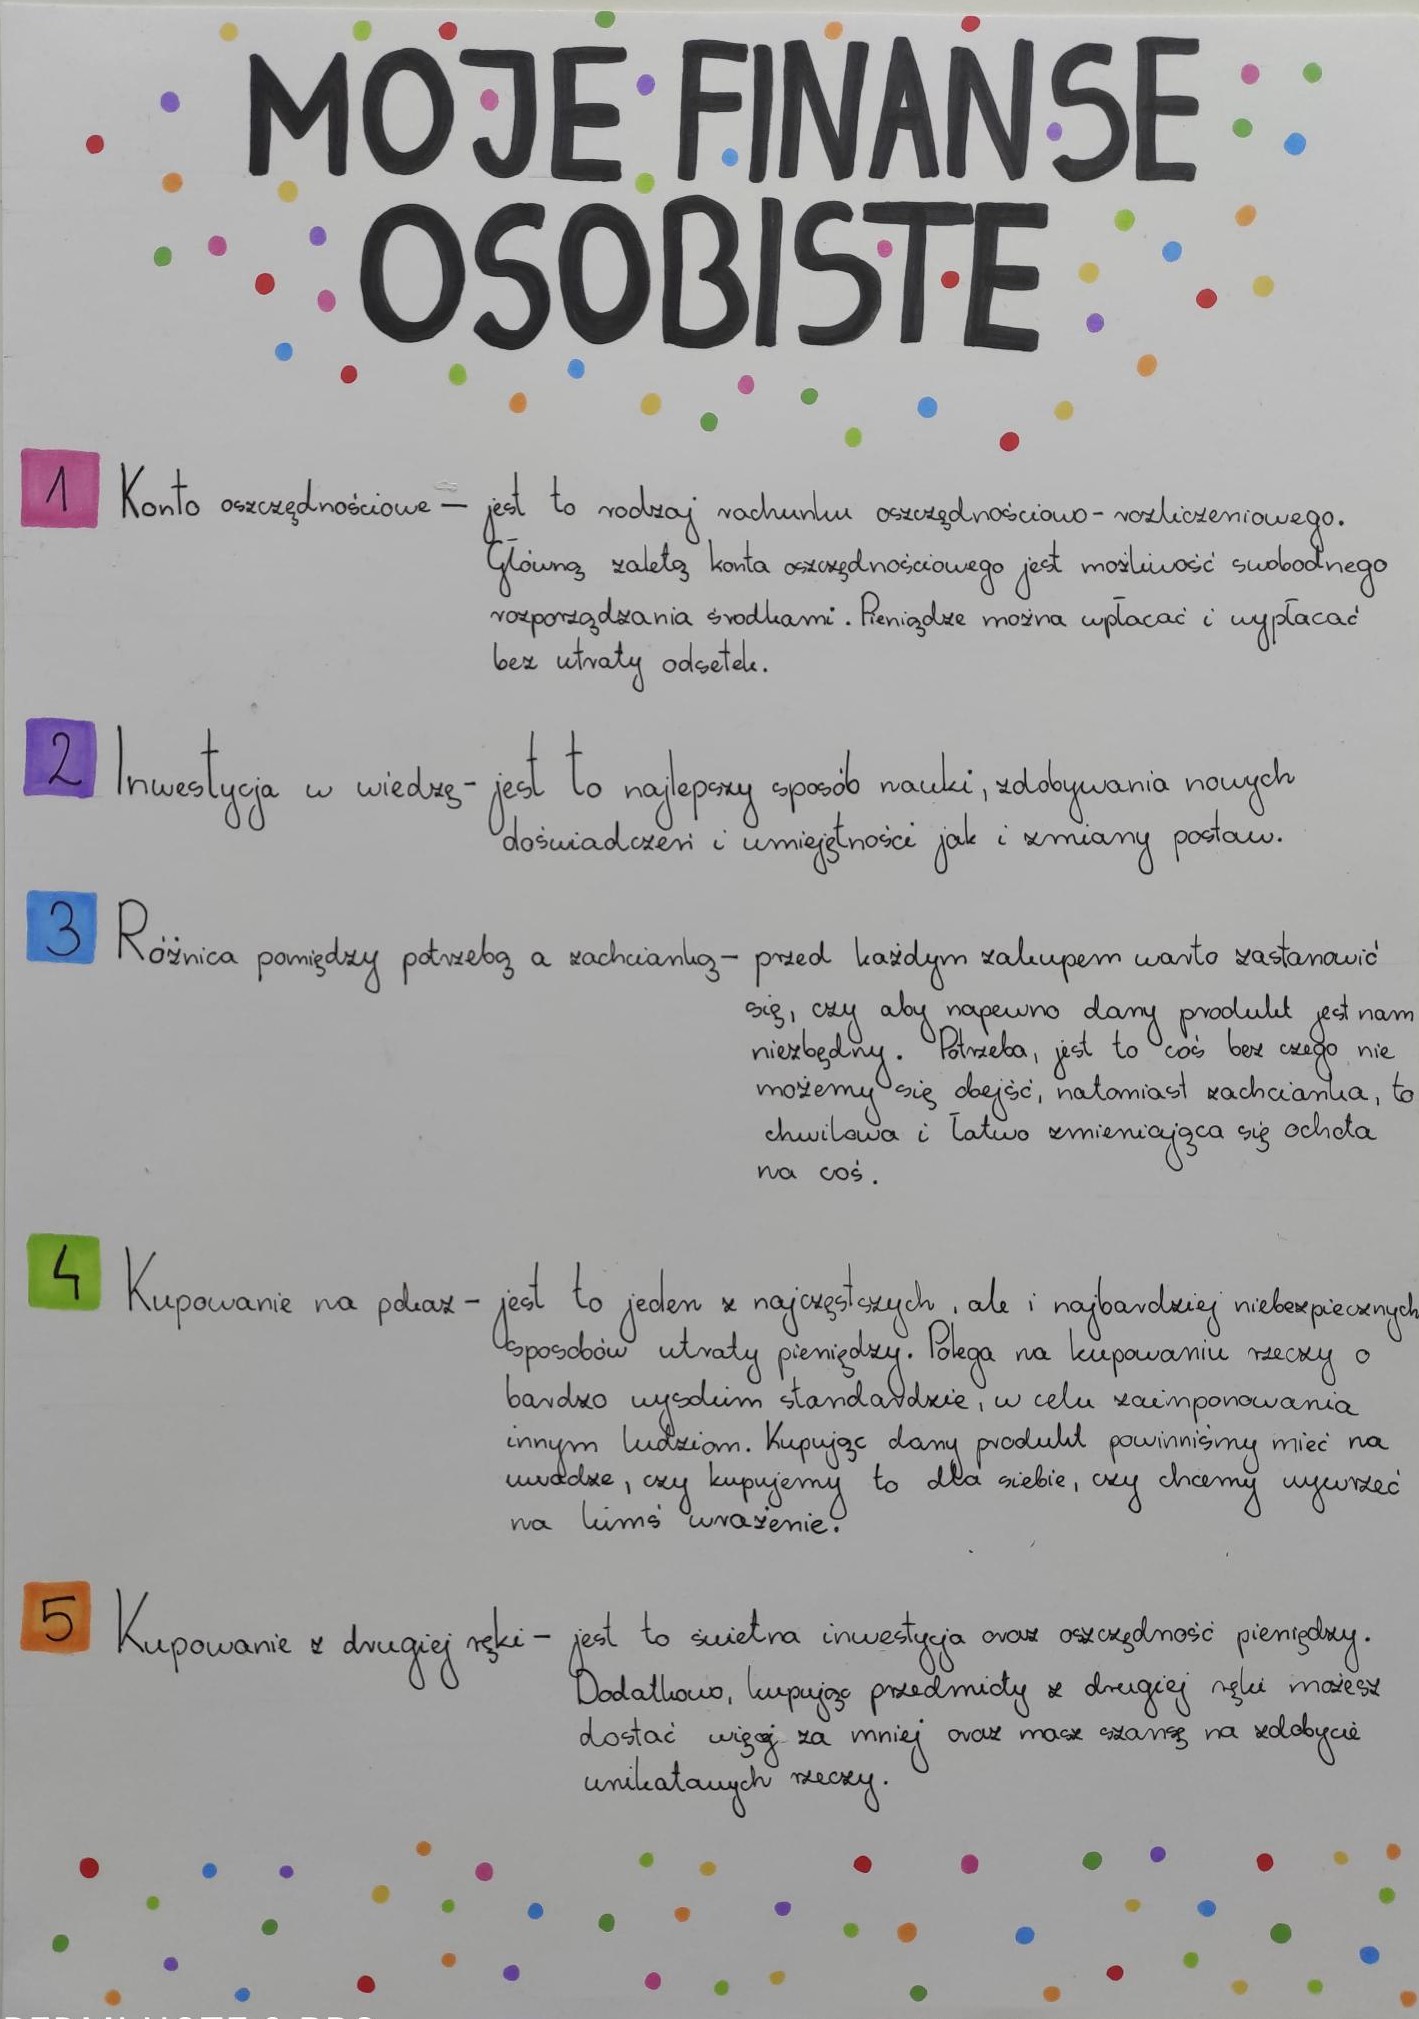 MOJE FINANSE
OSOBISTE
1 Konto oszczędnościowe – jest to rodzaj rachunku oszczędnościowo-rozliczeniowego.
Główną zaletą konta oszczędnościowego jest możliwość swobodnego
rozporządzania środkami. Pieniądze można wpłacać i wypłacać
bez utraty odsetek.
2 Inwestycja w wiedzę – jest to najlepszy sposób nauki, zdobywania nowych
doświadczeń i umiejętności jak i zmiany postaw.
3 Różnica pomiędzy potrzebą a zachcianką – przed każdym zakupem warto zastanowić
się, czy aby napewno dany produkt jest nam
niezbędny. Potrzeba, jest to coś bez czego nie
możemy się obejść, natomiast zachcianka, to
chwilowa i łatwo zmieniająca się ochota
na coś.
4 Kupowanie na pokaz – jest to jeden z najczęstszych, ale i najbardziej niebezpiecznych
sposobów utraty pieniędzy. Polega na kupowaniu rzeczy o
bardzo wysokim standardzie, w celu zaimponowania
innym ludziom. Kupując dany produkt powinniśmy mieć na
uwadze, czy kupujemy to dla siebie, czy chcemy wywrzeć
na kimś wrażenie.
5 Kupowanie z drugiej ręki – jest to świetna inwestycja oraz oszczędność pieniędzy.
Dodatkowo, kupując przedmioty z drugiej ręki możesz
dostać więcej za mniej oraz masz szansę na zdobycie
unikatowych rzeczy.